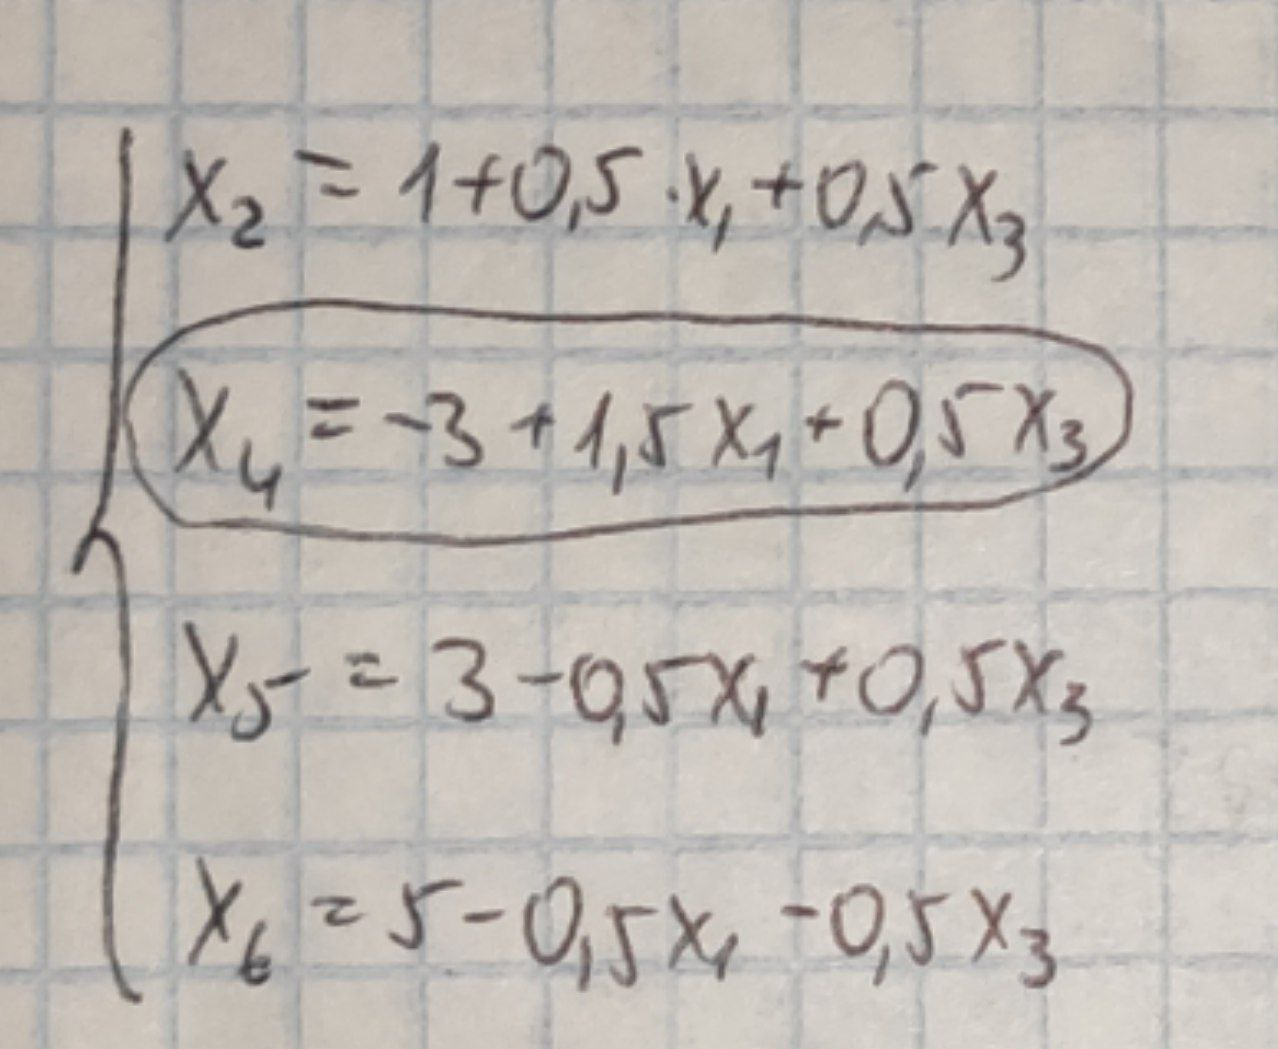 x₂ = 1+0,5·x₁+0,5x₃
x₄ = -3+1,5x₁+0,5x₃
x₅ = 3-0,5x₁+0,5x₃
x₆ = 5-0,5x₁-0,5x₃